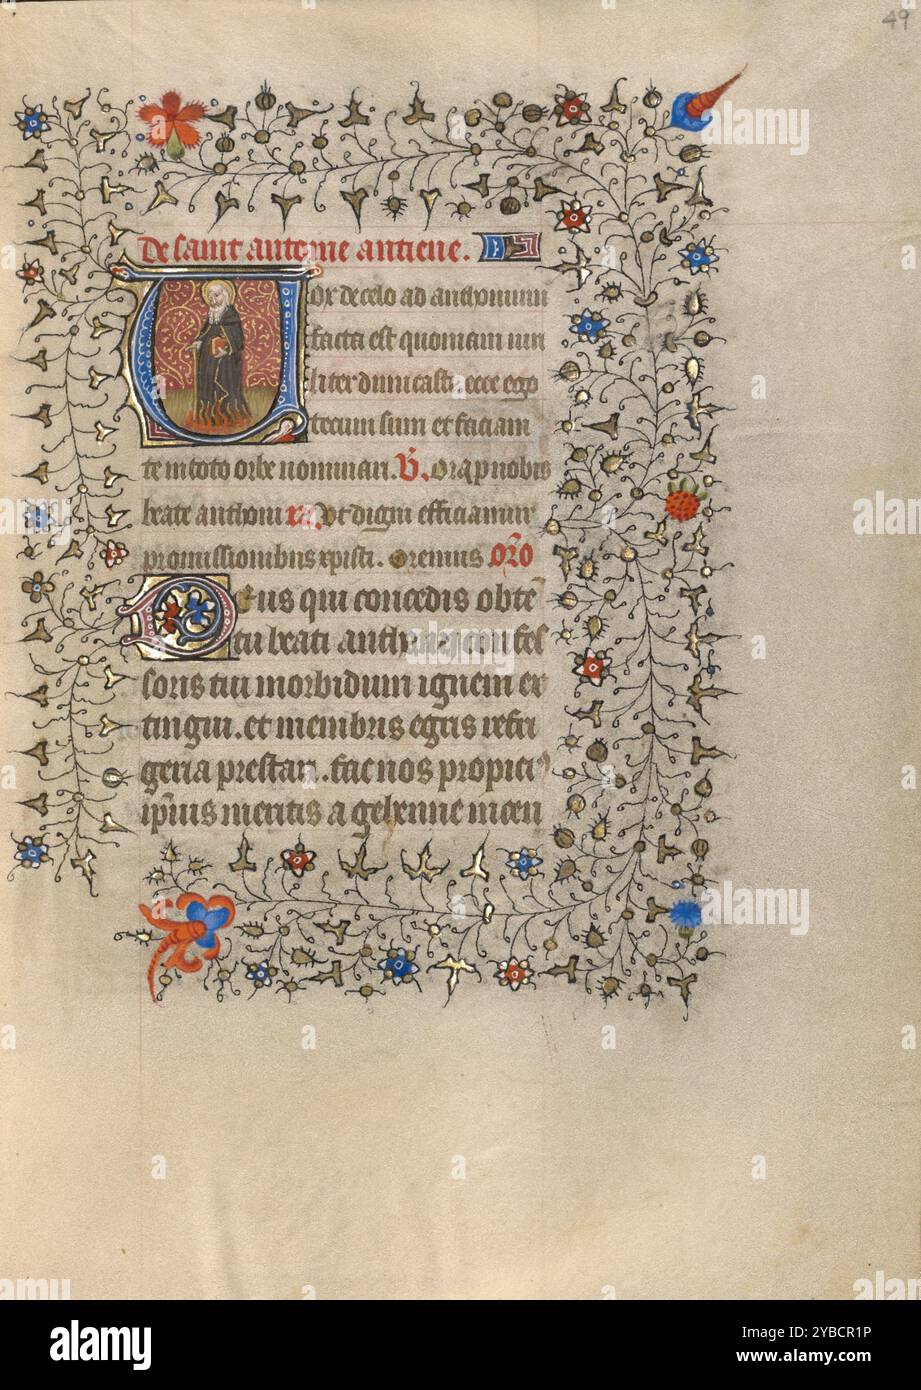 49
De saint antoine antiene.
Vox de celo ad anthonium
facta est quoniam uiri
liter dimicasti. ecce ego
tecum sum et faciam
te in toto orbe nominari. V. Ora p nobis
beate anthoni Vt digni efficiamur
promissionibus xpisti. Oremus Oro
Deus qui concedis obtē
tu beati anthonij confes
soris tui morbidum ignem ex
tingui. et membris egris refri
geria prestari. fac nos propici
ip̄ius meritis a gehenne incen
alamy
Image ID: 2YBCR1P
www.alamy.com